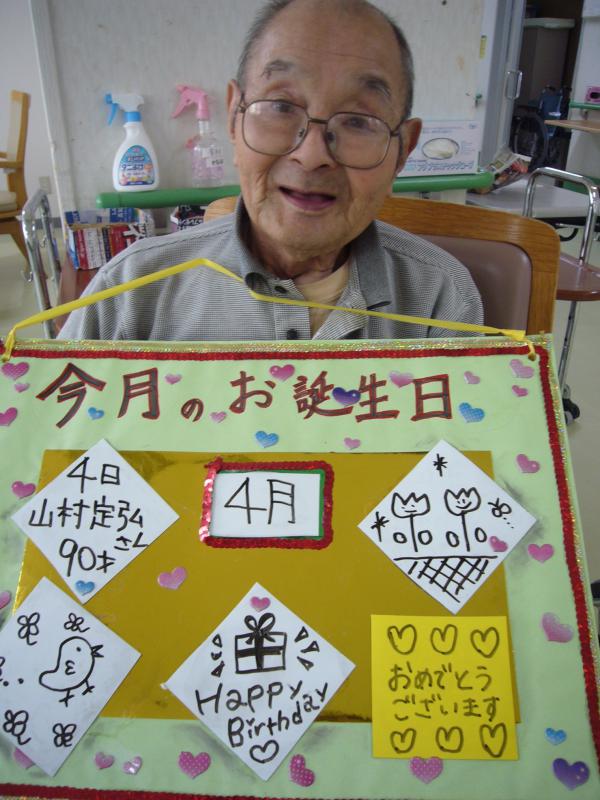 今月のお誕生日
4日
山村定弘
さん
90才
4月
Happy
Birthday
おめでとう
ございます